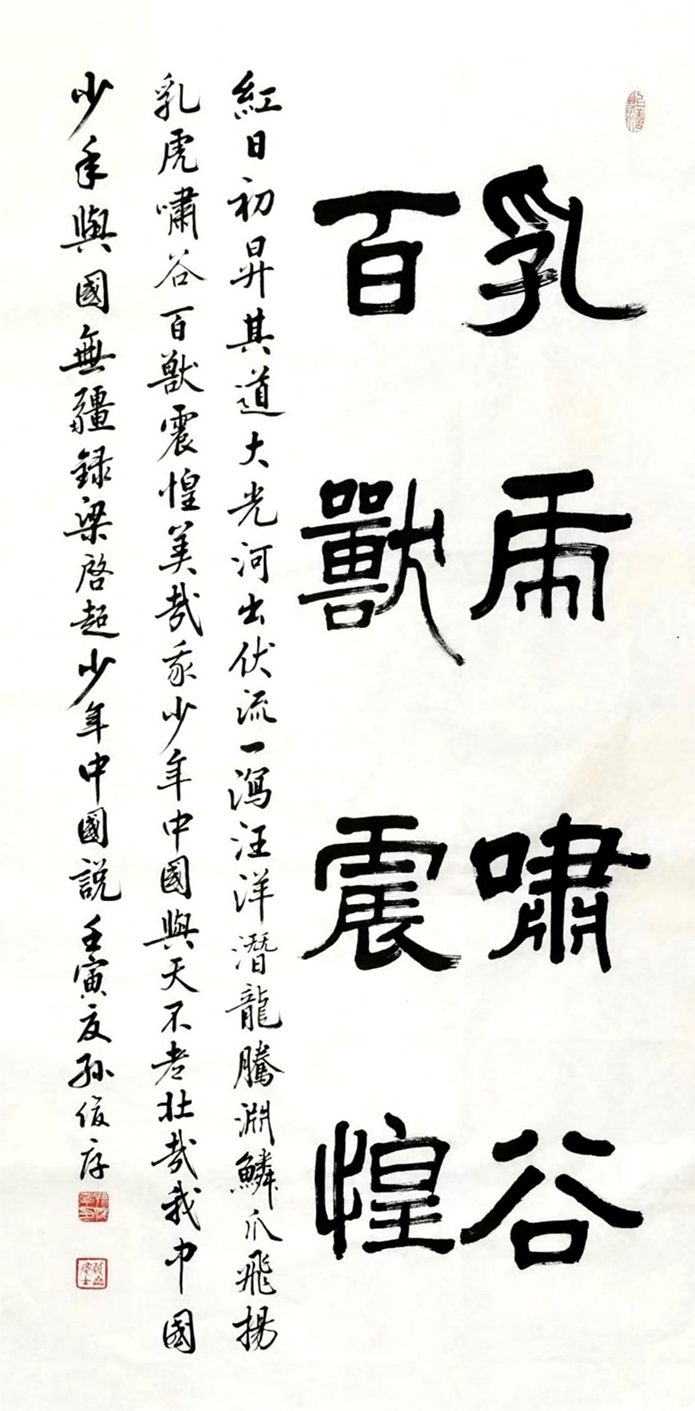 乳虎嘯谷
百獸震惶
紅日初昇其道大光河出伏流一瀉汪洋潛龍騰淵鱗爪飛揚
乳虎嘯谷百獸震惶美哉我少年中國與天不老壯哉我中國
少年與國無疆録梁啓超少年中國說壬寅夏孫俊存